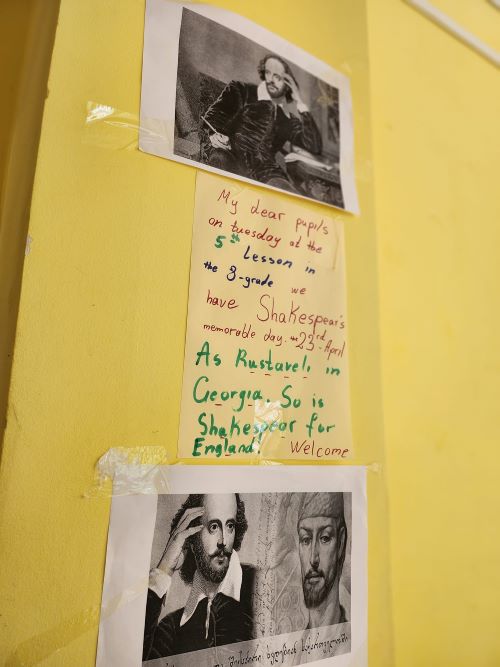 My dear pupils
on tuesday at the
5th Lesson in
the 8-grade we
have Shakespear's
memorable day. the 23rd April
As Rustaveli in
Georgia. So is
Shakespear for
England! Welcome